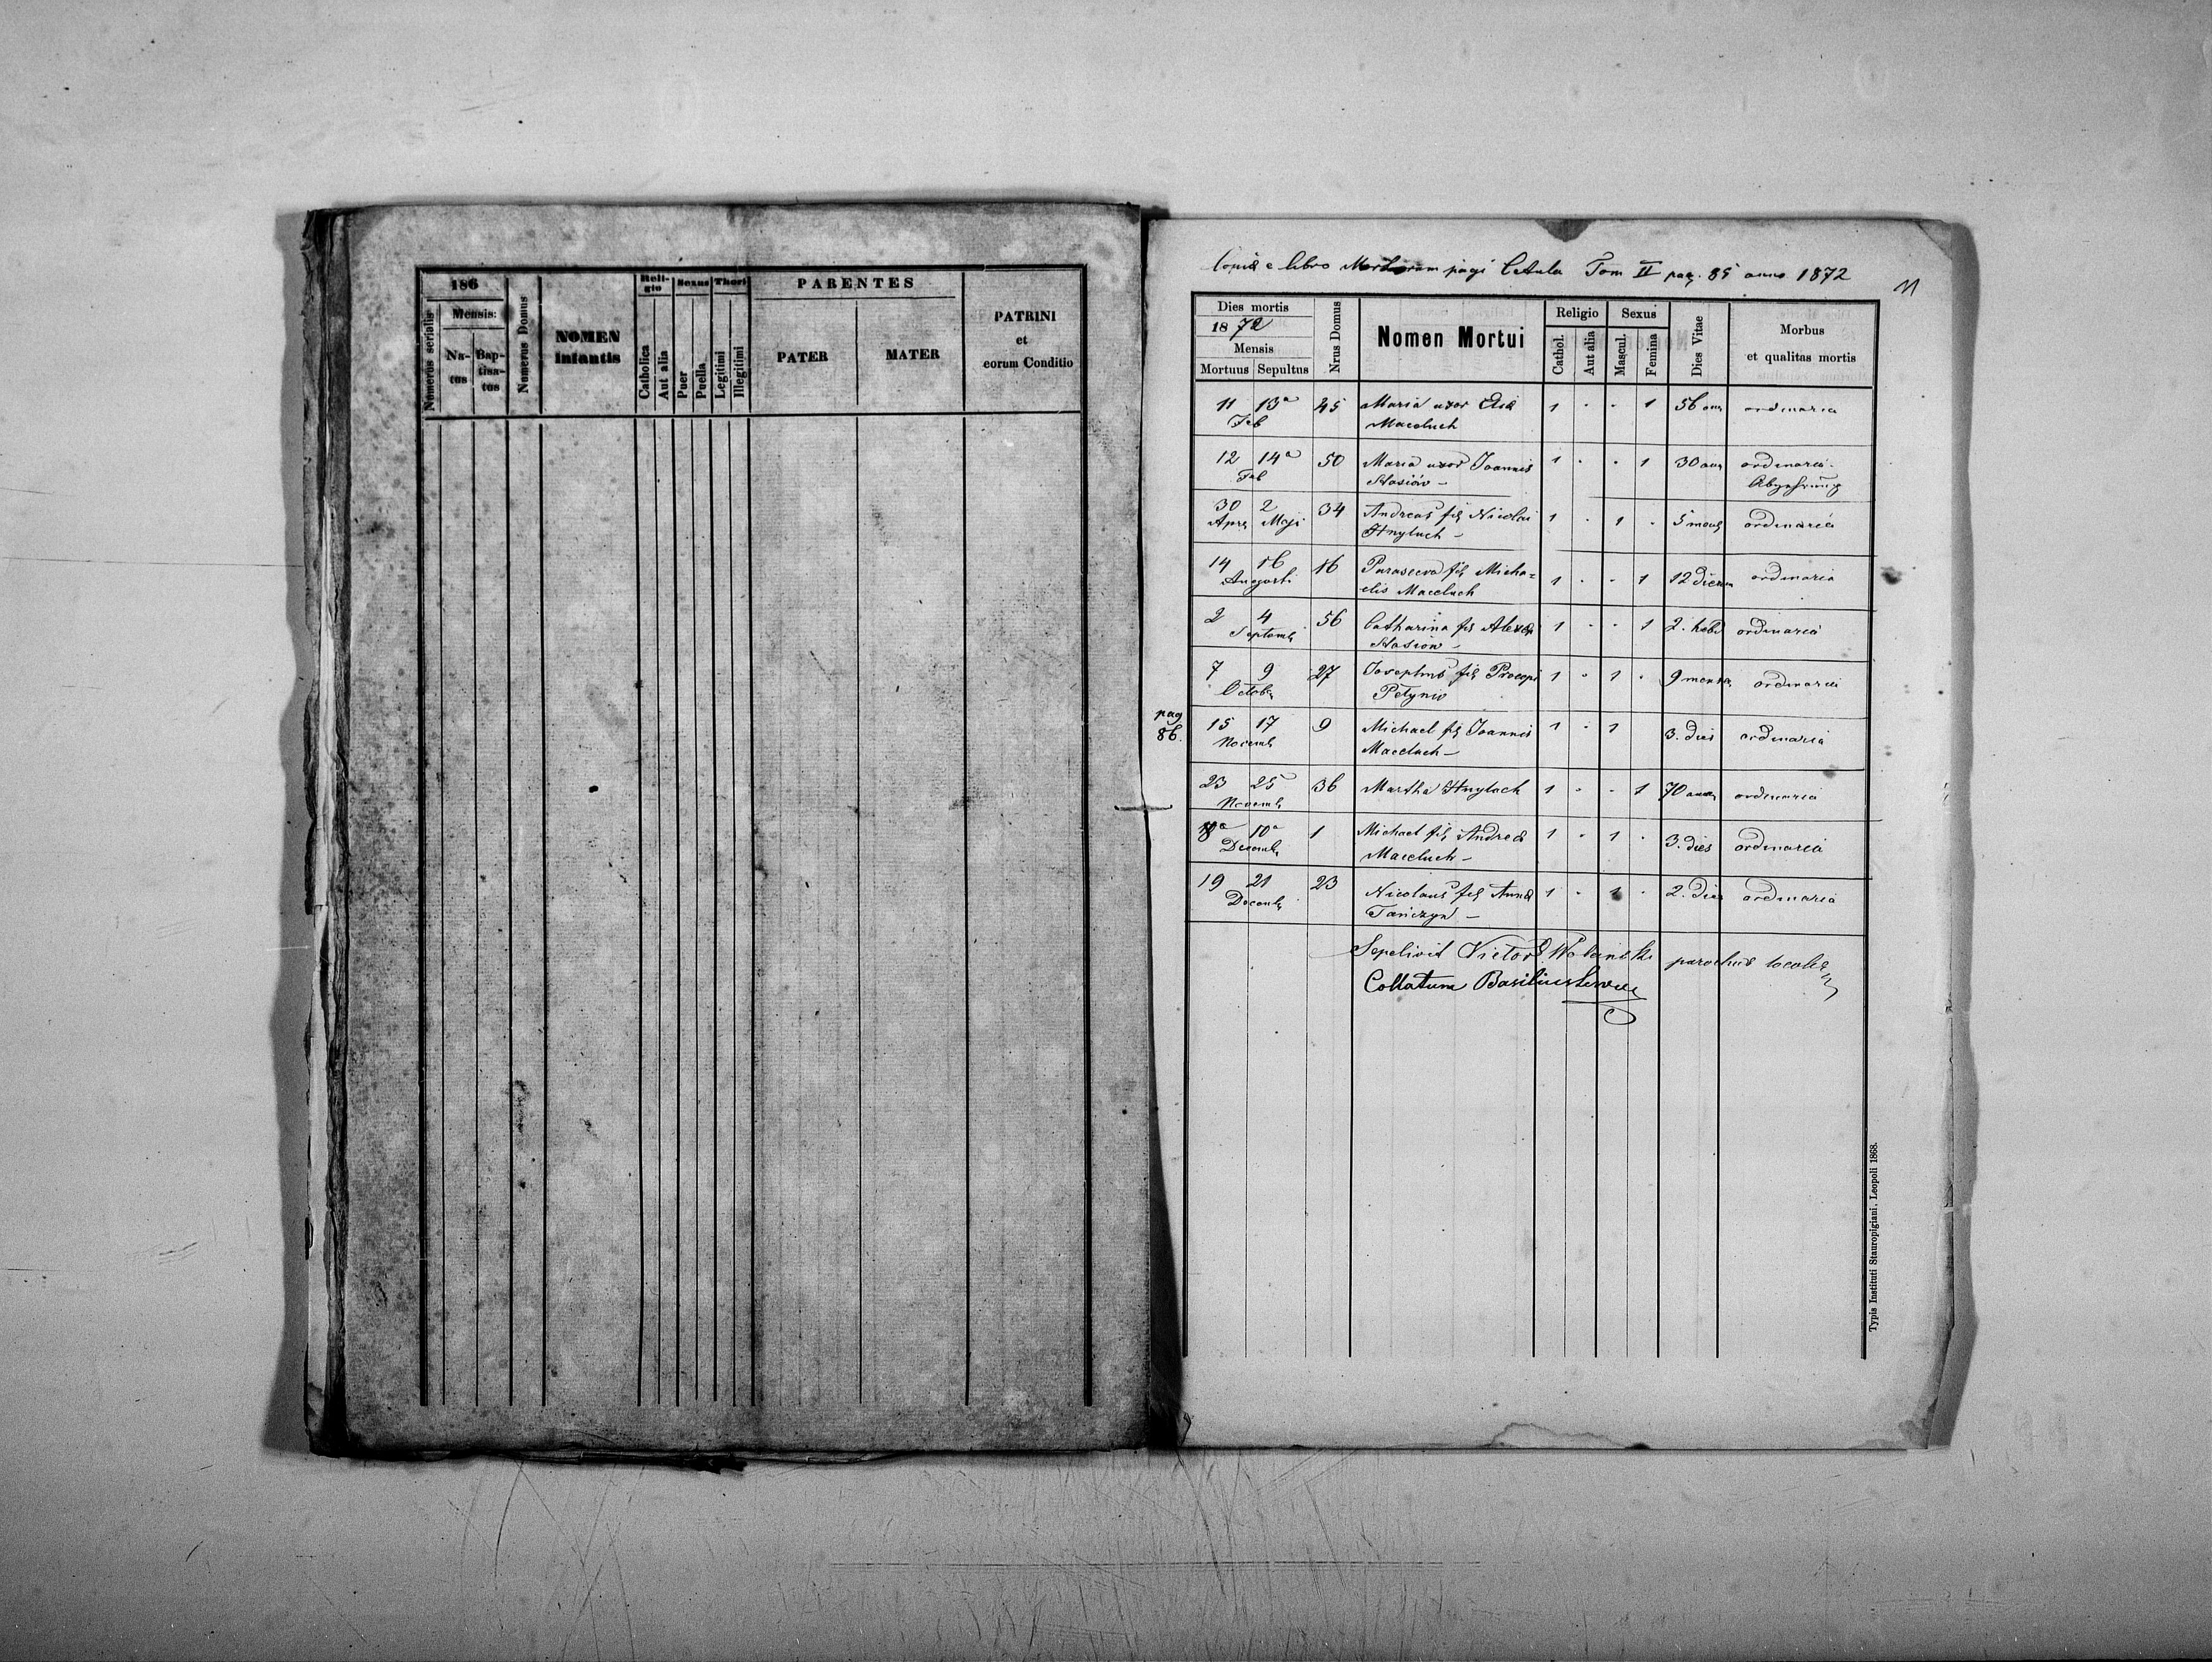 186
Mensis:
Numerus serialis
Na-
tus
Bap-
tisa-
tus
Numerus Domus
NOMEN
infantis
Reli-
gio
Catholica
Aut alia
Sexus
Puer
Puella
Thori
Legitimi
Illegitimi
PARENTES
PATER
MATER
PATRINI
et
eorum Conditio
Copia e libro Mortuorum pagi Cetula Tom II pag. 85 anno 1872
11
Dies mortis
1872
Mensis
Mortuus Sepultus
Nrus Domus
Nomen Mortui
Religio
Cathol.
Aut alia
Sexus
Mascul.
Femina
Dies Vitae
Morbus
et qualitas mortis
11 13a 45 Maria uxor Eliae 1 - - 1 56 ann ordinaria
Feb Maceluch
12 14a 50 Maria uxor Joannis 1 - - 1 30 ann ordinaria
Feb Stasiów - Abzehrung
30 2 34 Andreas fil Nicolai 1 - 1 - 5 mens ordinaria
Apr Maji Hnyluch -
14 16 16 Parasceva fil Micha= 1 - - 1 12 dierum ordinaria
Augusti elis Maceluch
2 4 56 Catharina fil Alexii 1 - - 1 2. hebd ordinaria
Septemb Stasiow -
7 9 27 Josephus fil Procopi 1 - 1 - 9 menses ordinaria
Octob Petyniv
pag
86.
15 17 9 Michael fil Joannis 1 - 1 3. dies ordinaria
Novemb Maceluch -
23 25 36 Martha Hnyluch 1 - - 1 70 ann ordinaria
Novemb
8a 10a 1 Michael fil Andreae 1 - 1 - 3. dies ordinaria
Decemb Maceluch -
19 21 23 Nicolaus fil Annae 1 - 1 - 2. dies ordinaria
Decemb Tańczyn -
Sepelivit Victor parochus localis
Collatum Basilius
Typis Instituti Stauropigiani, Leopoli 1868.